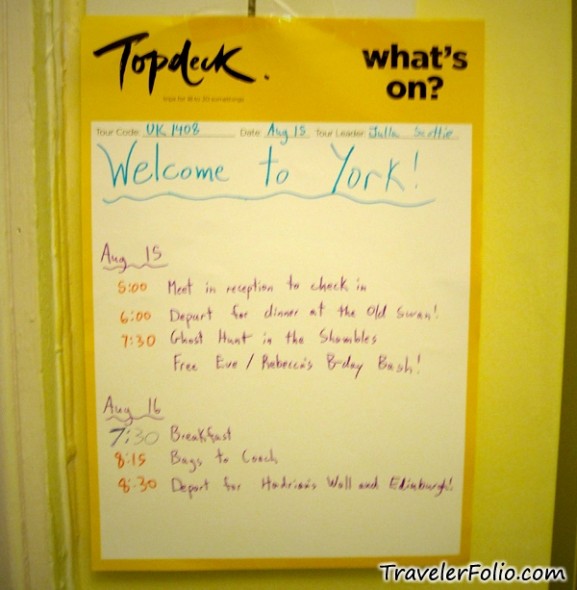 Topdeck.
what's
on?
trips for 18 to 30 somethings
Tour Code UK 1408 Date Aug 15 Tour Leader Julia Scottie
Welcome to York!
Aug 15
5:00 Meet in reception to check in
6:00 Depart for dinner at the Old Swan!
7:30 Ghost Hunt in the Shambles
Free Eve / Rebecca's B-day Bash!
Aug 16
7:30 Breakfast
8:15 Bags to Coach
8:30 Depart for Hadrian's Wall and Edinburgh!
TravelerFolio.com